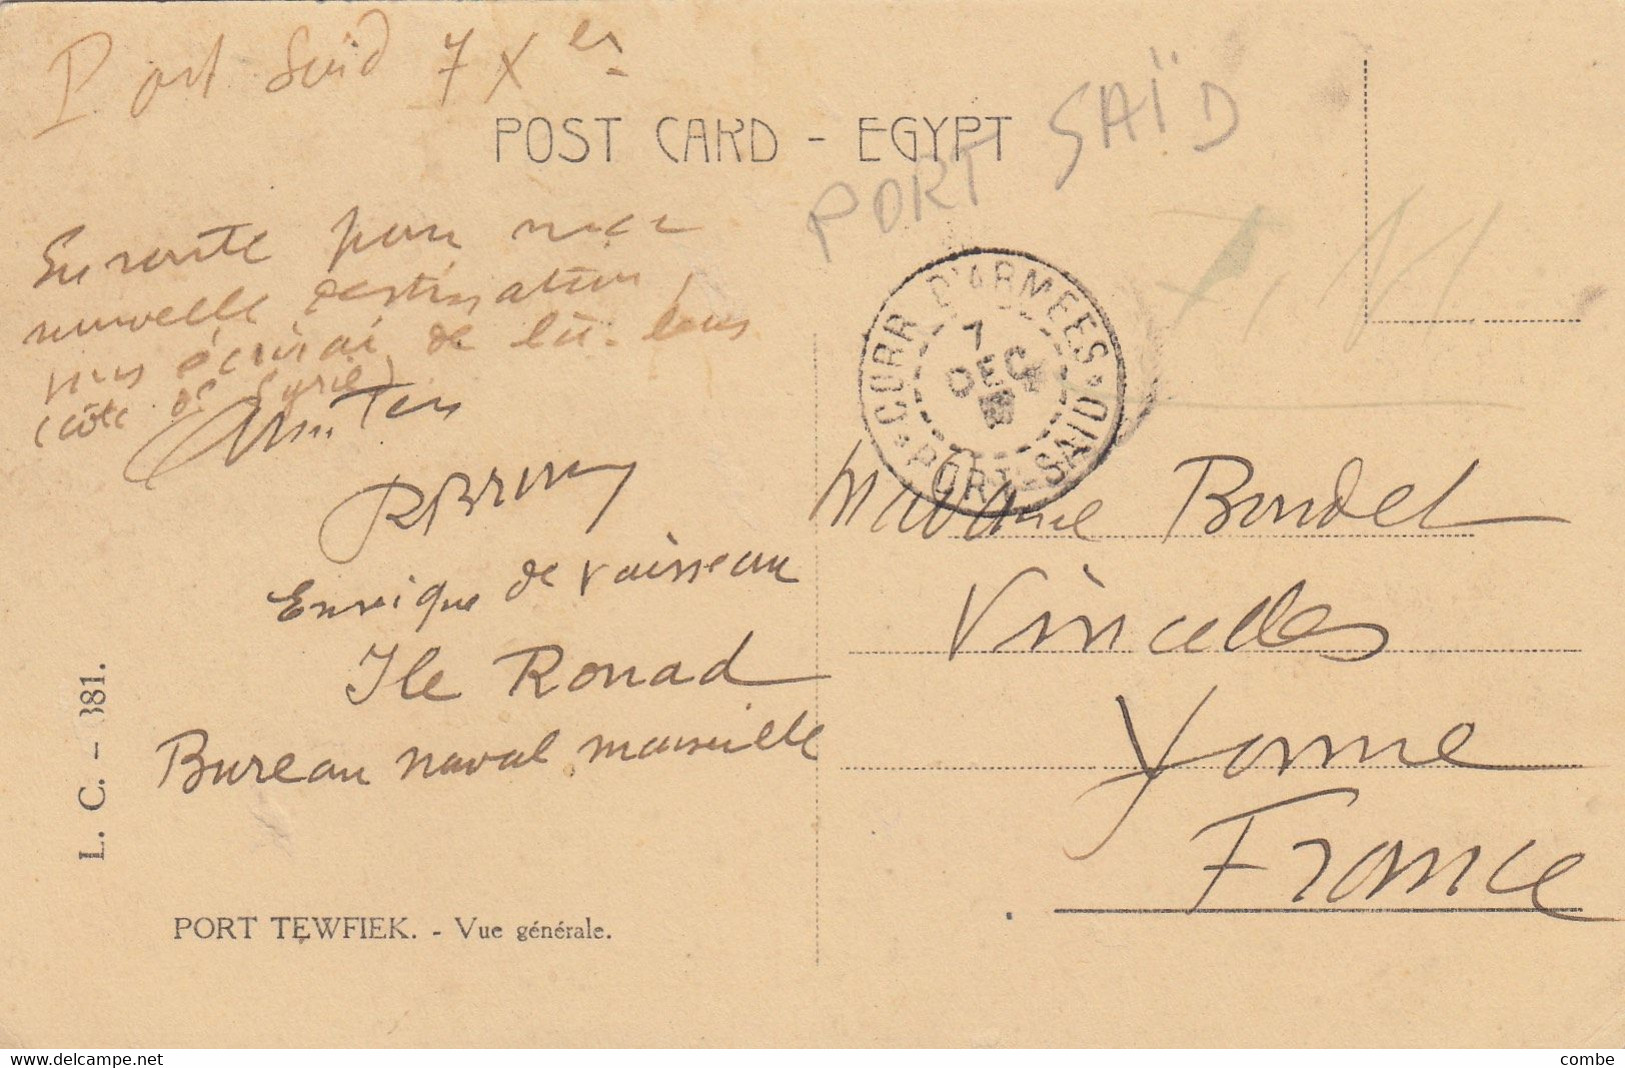 Port Saïd 7 Xbre
POST CARD - EGYPT
PORT SAÏD
En route pour une
nouvelle destination,
vous écrirai de là-bas
(côte de Syrie)
R Brun
Enseigne de vaisseau
Ile Rouad
Bureau naval Marseille
L. C. - 381.
PORT TEWFIEK. - Vue générale.
CORR. D'ARMEES
7
DEC
PORT-SAID
Madame Bondet
Vincelles
Yonne
France
combe
www.delcampe.net